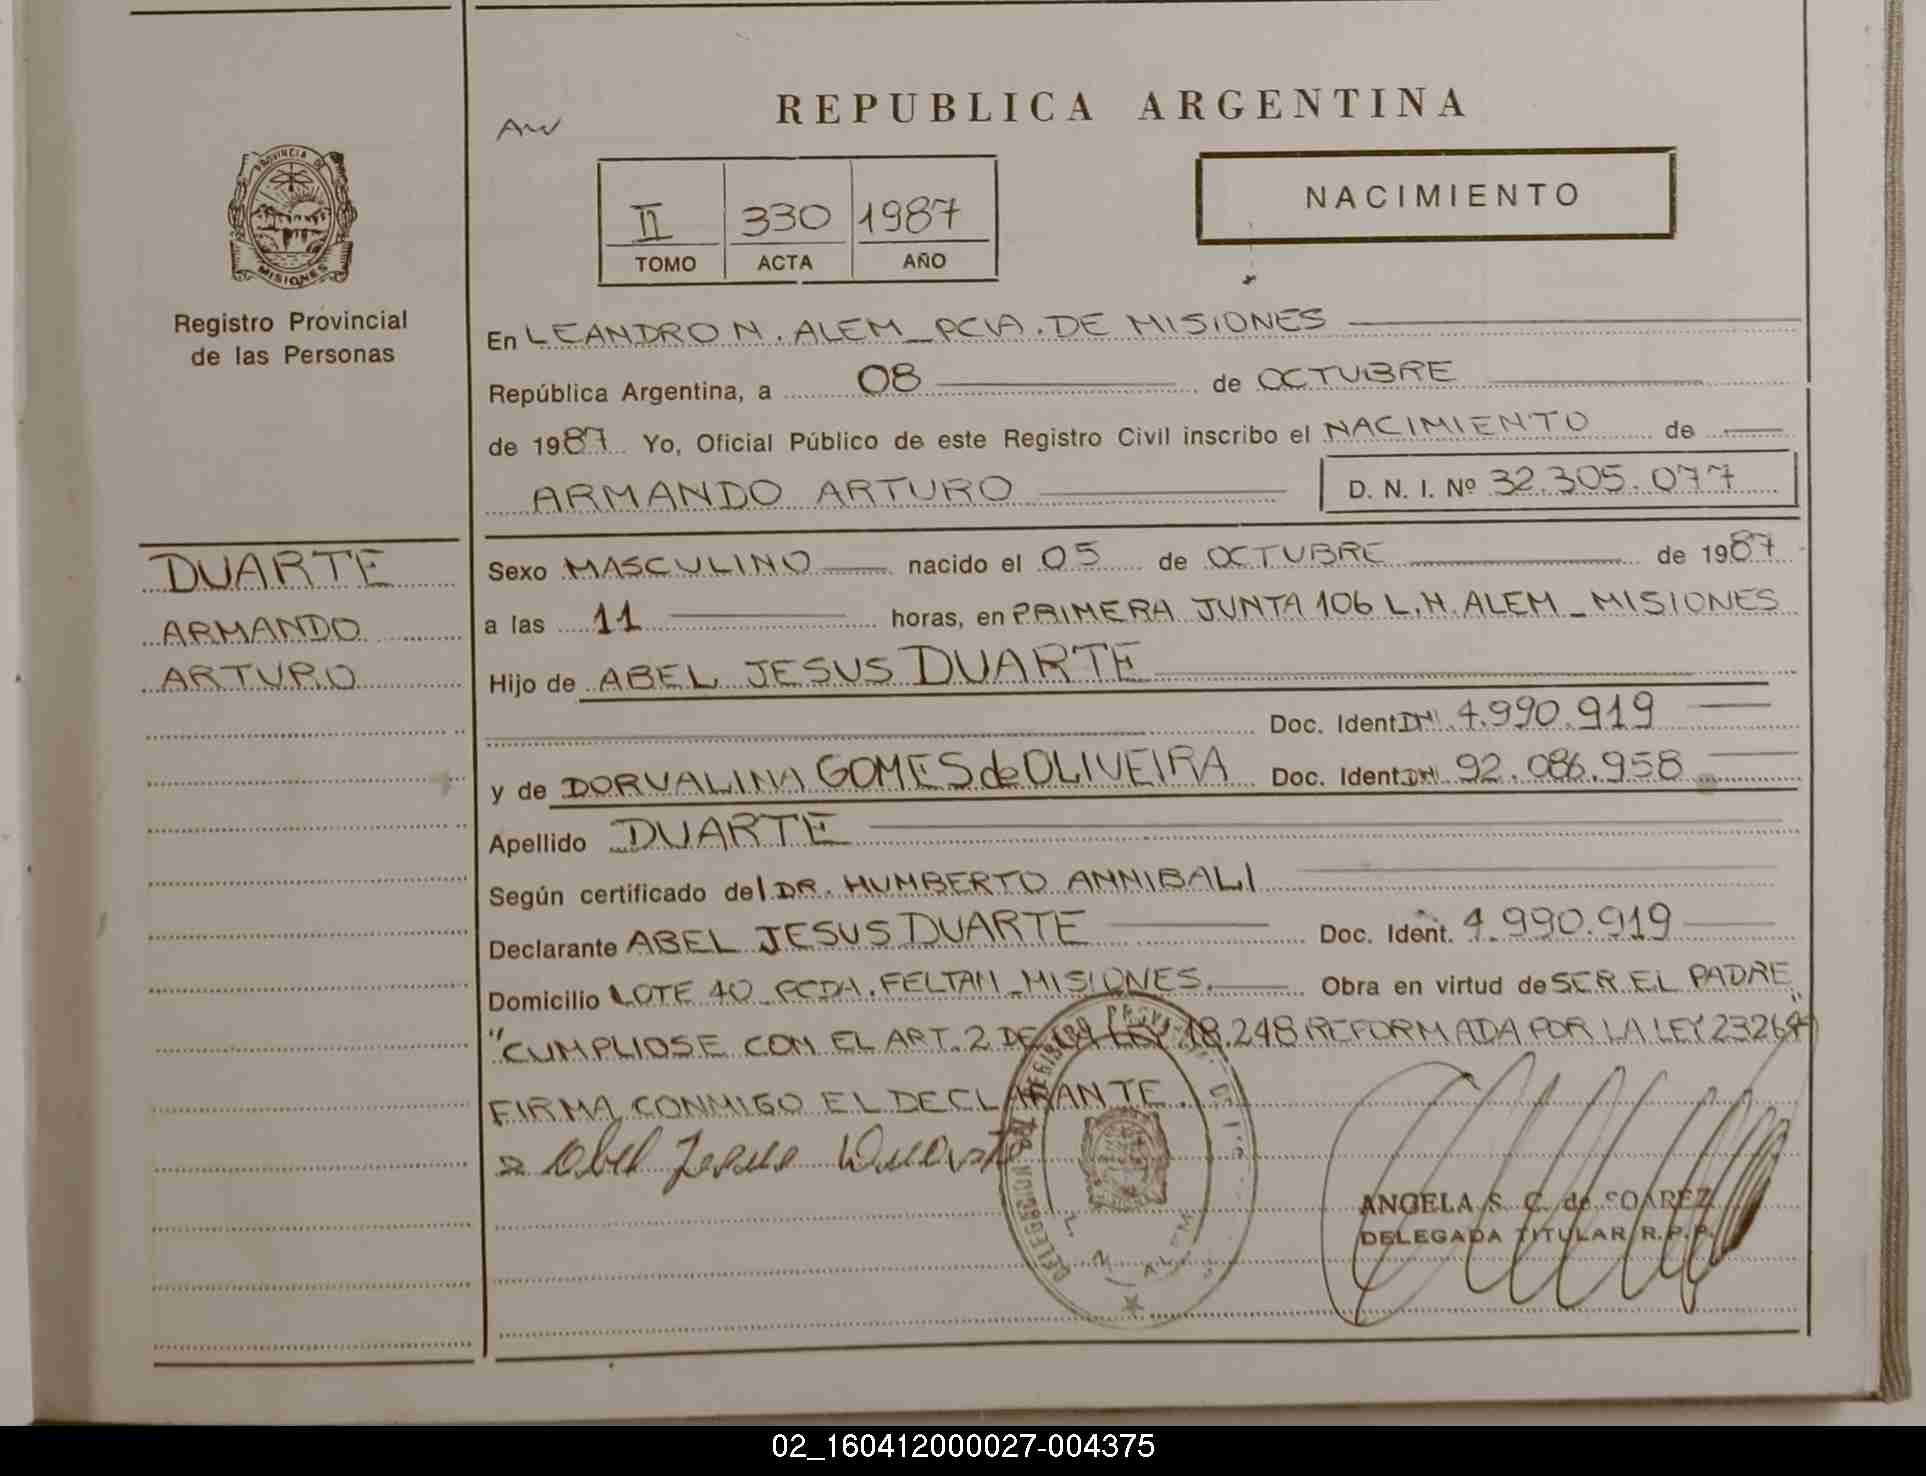 REPUBLICA ARGENTINA
AW
PROVINCIA DE
MISIONES
Registro Provincial
de las Personas
II 330 1987
TOMO ACTA AÑO
NACIMIENTO
En LEANDRO N. ALEM_PCIA. DE MISIONES
República Argentina, a 08 de OCTUBRE
de 1987 Yo, Oficial Público de este Registro Civil inscribo el NACIMIENTO de
ARMANDO ARTURO D. N. I. Nº 32.305.077
DUARTE
ARMANDO
ARTURO
Sexo MASCULINO nacido el 05 de OCTUBRE de 1987
a las 11 horas, en PRIMERA JUNTA 106 L.N. ALEM_MISIONES
Hijo de ABEL JESUS DUARTE
Doc. Ident. DNI 4.990.919
y de DORVALINA GOMES de OLIVEIRA Doc. Ident. DNI 92.086.958
Apellido DUARTE
Según certificado del DR. HUMBERTO ANNIBALI
Declarante ABEL JESUS DUARTE Doc. Ident. 4.990.919
Domicilio LOTE 40 PCDA. FELTAN_MISIONES. Obra en virtud de SER EL PADRE
"CUMPLIOSE CON EL ART. 2 DE LA LEY 18.248 REFORMADA POR LA LEY 23264"
FIRMA CONMIGO EL DECLARANTE.
Abel Jesus Duarte
DELEGACION
L. N. ALEM
ANGELA S. C. de SOAREZ
DELEGADA TITULAR R.P.P.
02_160412000027-004375